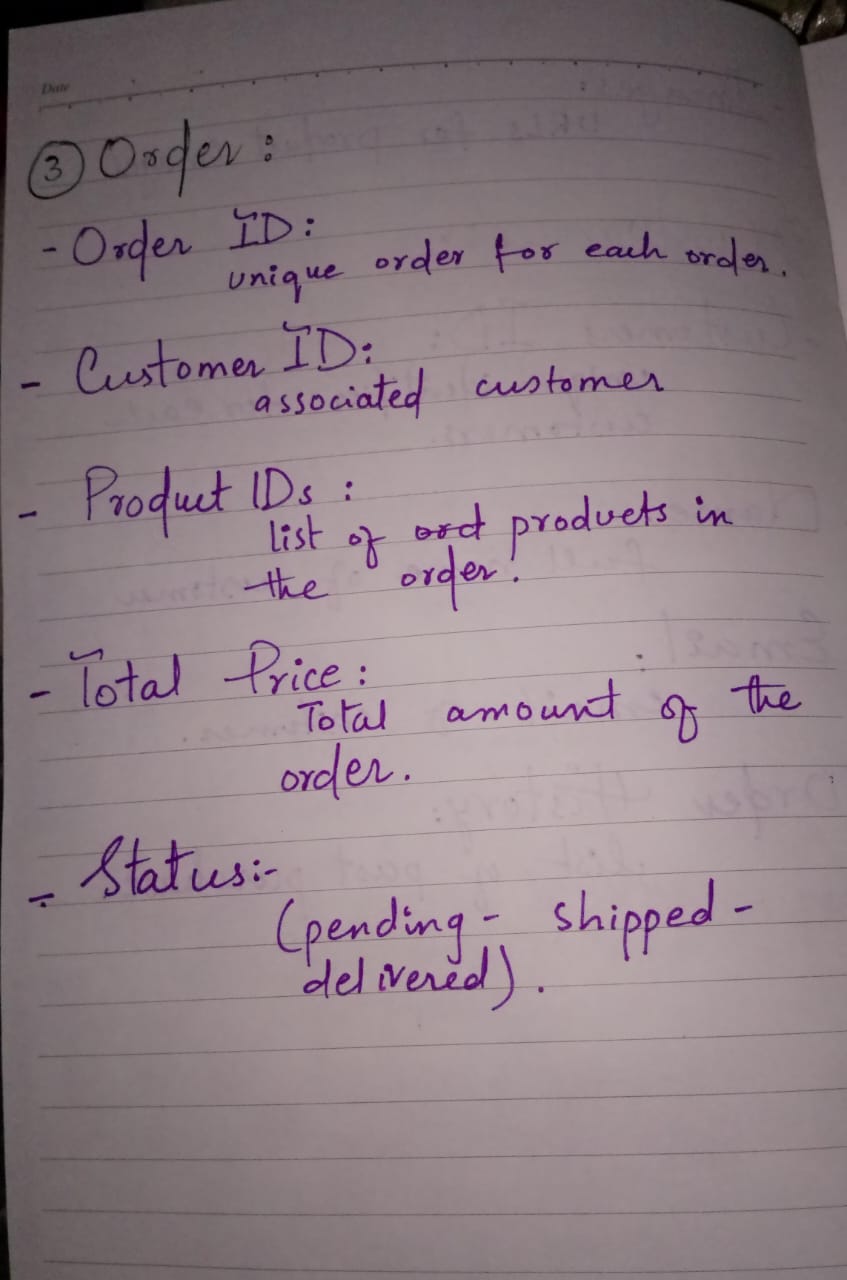 Date
③ Order:
- Order ID:
unique order for each order.
- Customer ID:
associated customer
- Product IDs:
list of ord products in
the order.
- Total Price:
Total amount of the
order.
- Status:-
(pending - shipped -
delivered).